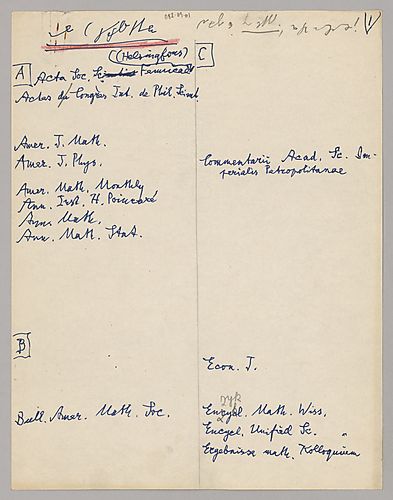 (Helsingfors)
A Acta Soc. Fennicae
Actes du Congrès Int. de Phil. Scient.
Amer. J. Math.
Amer. J. Phys.
Amer. Math. Monthly
Ann. Inst. H. Poincaré
Ann. Math.
Ann. Math. Stat.
B
Bull. Amer. Math. Soc.
C
Commentarii Acad. Sc. Im-
perialis Petropolitanae
Econ. J.
Encykl. Math. Wiss.
Encycl. Unified Sc.
Ergebnisse math. Kolloquium